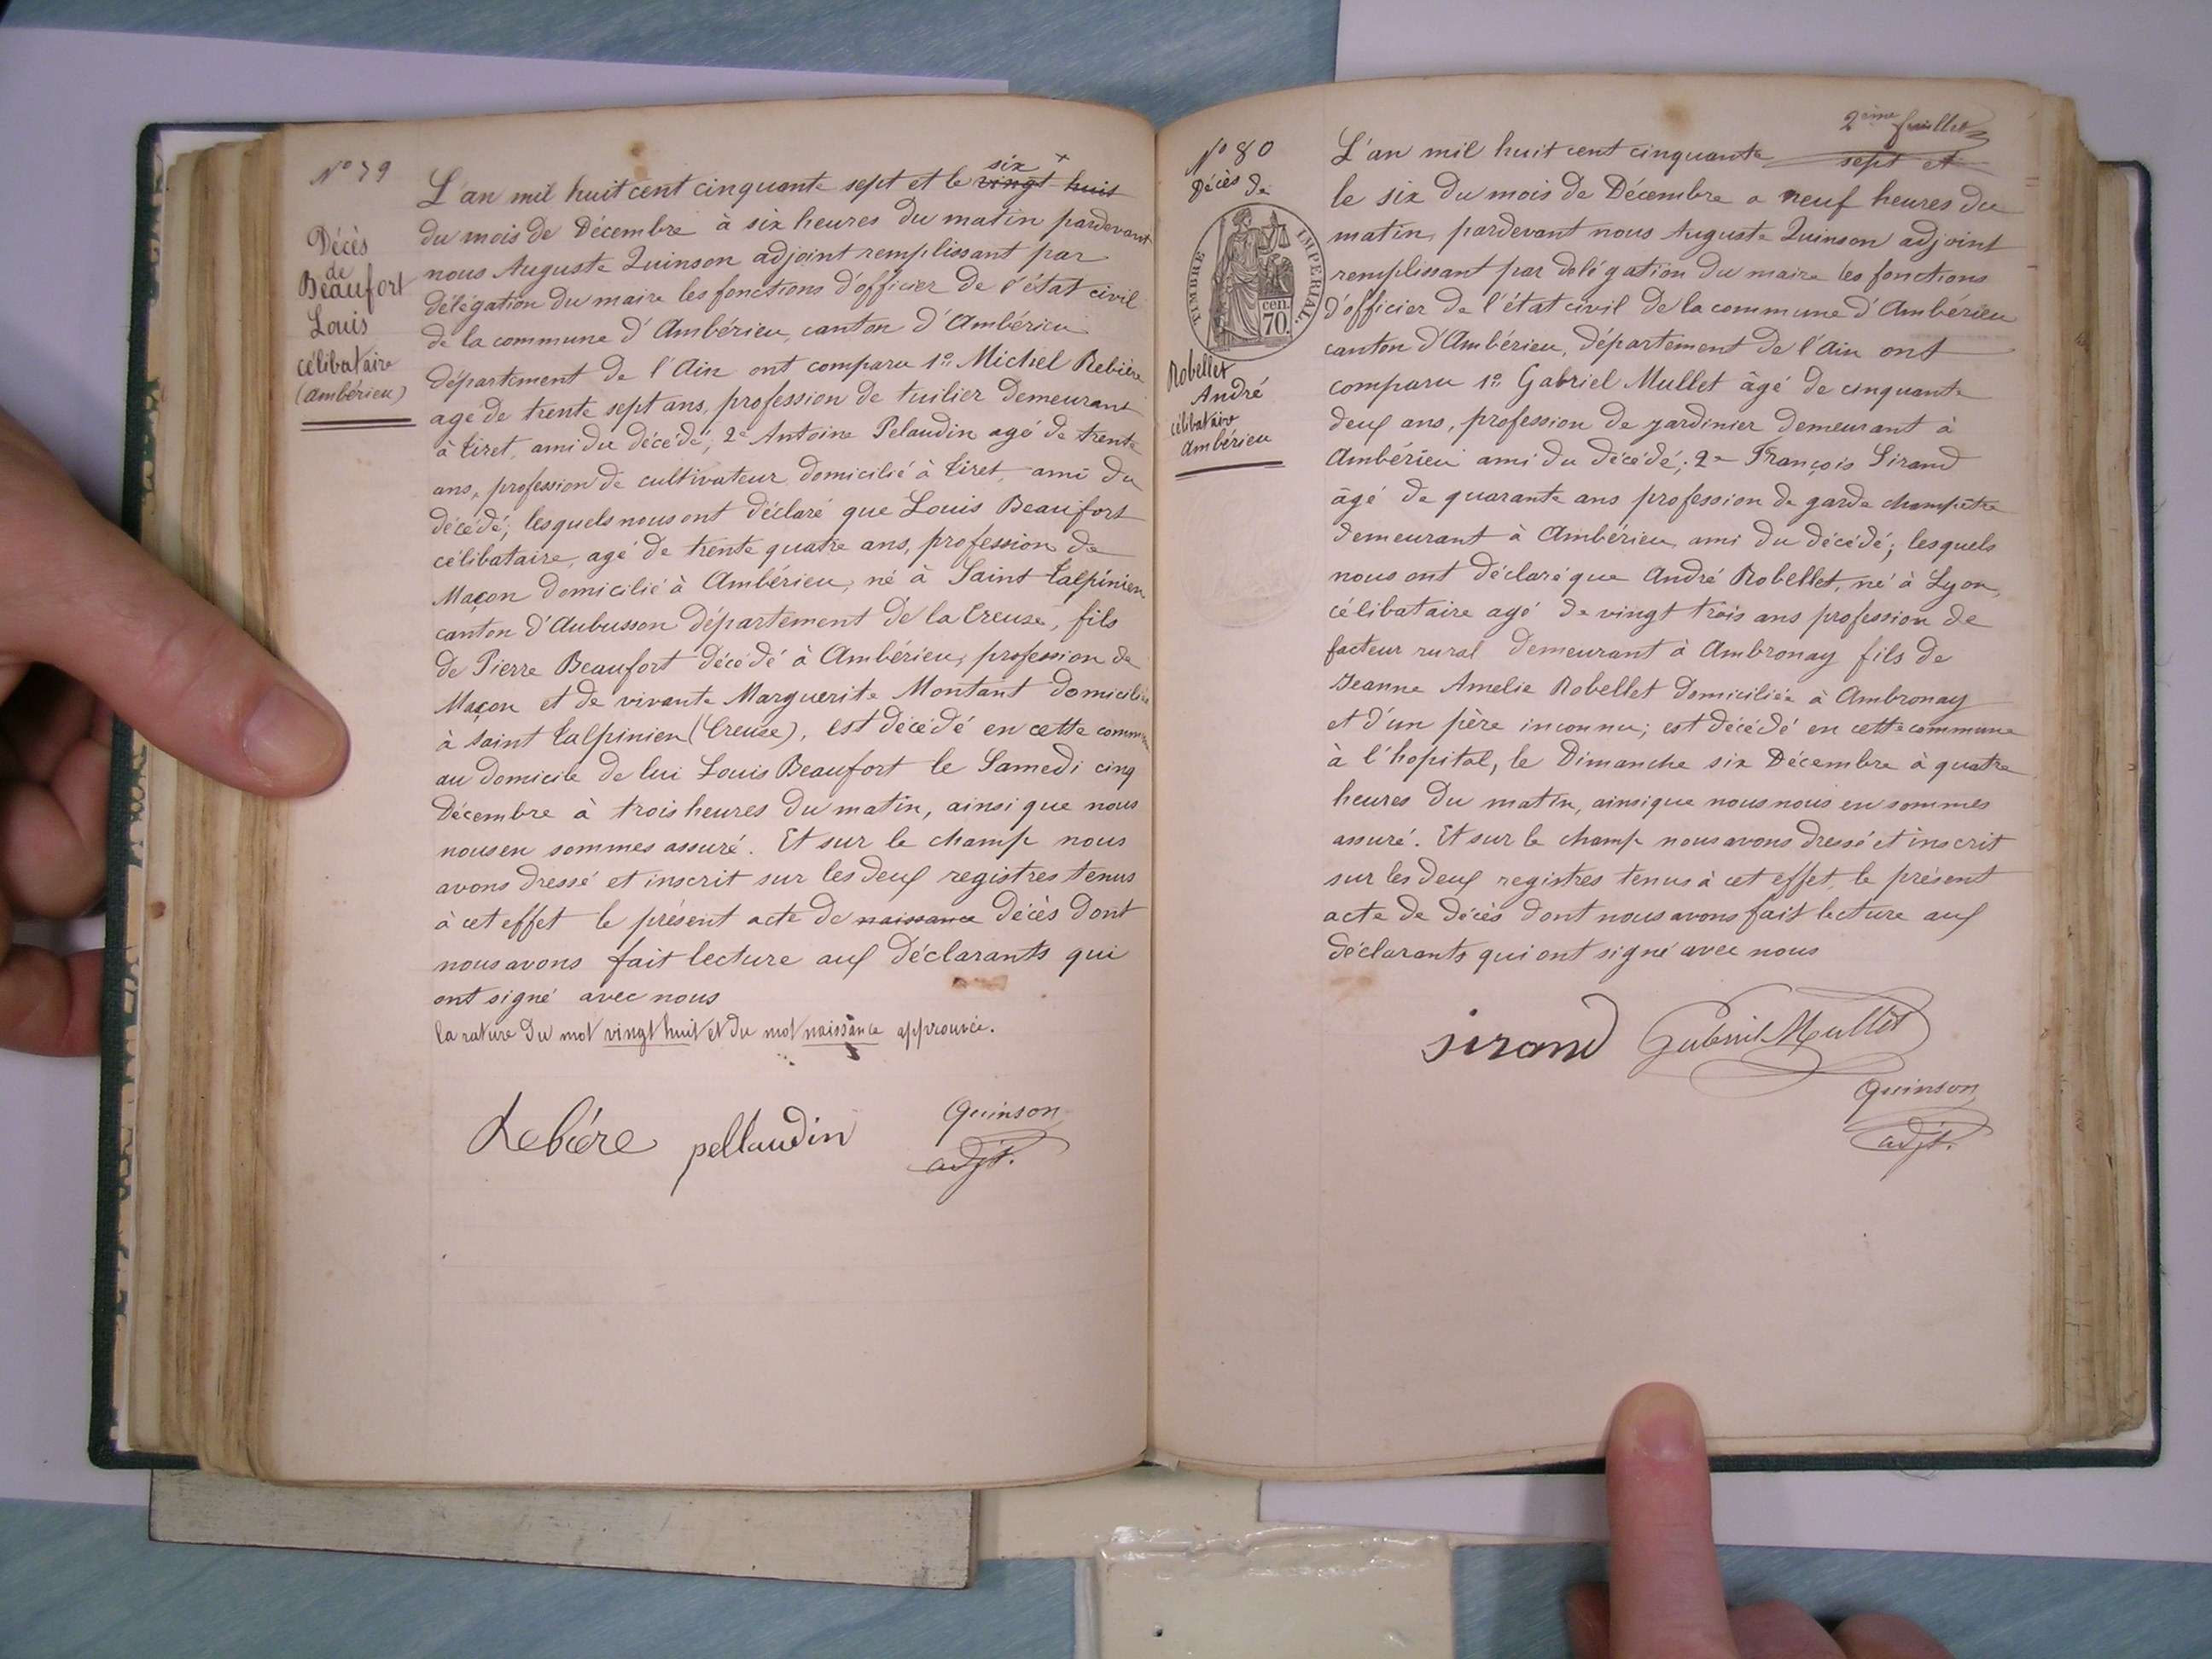 N° 79
Décès
de
Beaufort
Louis
célibataire
(Ambérieu)
six +
L'an mil huit cent cinquante sept et le vingt huit
du mois de Décembre à six heures du matin pardevant
nous Auguste Quinson adjoint remplissant par
délégation du maire les fonctions d'officier de l'état civil
de la commune d'Ambérieu, canton d'Ambérieu
département de l'Ain ont comparu 1° Michel Rebière
agé de trente sept ans, profession de tuilier demeurant
à tiret, ami du décédé, 2e Antoine Pelaudin agé de trente
ans, profession de cultivateur domicilié à tiret, ami du
décédé; lesquels nous ont déclaré que Louis Beaufort
célibataire, agé de trente quatre ans, profession de
Maçon domicilié à Ambérieu, né à Saint talpinien
canton d'Aubusson département de la Creuse, fils
de Pierre Beaufort décédé à Ambérieu, profession de
Maçon et de vivante Marguerite Montant domiciliée
à saint talpinien (Creuse), est décédé en cette commune
au domicile de lui Louis Beaufort le Samedi cinq
Décembre à trois heures du matin, ainsi que nous
nous en sommes assuré. Et sur le champ nous
avons dressé et inscrit sur les deux registres tenus
à cet effet le présent acte de naissance décès dont
nous avons fait lecture aux déclarants qui
ont signé avec nous
la rature du mot vingt huit et du mot naissance approuvée.
Rebière pellaudin Quinson
adjt.
2ème feuillet
N° 80
Décès de
TIMBRE IMPERIAL.
70. cen.
Robellet
André
célibataire
Ambérieu
L'an mil huit cent cinquante sept et
le six du mois de Décembre a neuf heures du
matin, pardevant nous Auguste Quinson adjoint
remplissant par délégation du maire les fonctions
d'officier de l'état civil de la commune d'Ambérieu
canton d'Ambérieu, département de l'Ain ont
comparu 1° Gabriel Mullet âgé de cinquante
deux ans, profession de jardinier demeurant à
Ambérieu ami du décédé; 2e François Sirand
âgé de quarante ans profession de garde champêtre
demeurant à Ambérieu, ami du décédé; lesquels
nous ont déclaré que André Robellet, né à Lyon,
célibataire agé de vingt trois ans profession de
facteur rural demeurant à Ambronay fils de
Jeanne Amelie Robellet domiciliée à Ambronay
et d'un père inconnu; est décédé en cette commune
à l'hopital, le Dimanche six Décembre à quatre
heures du matin, ainsi que nous nous en sommes
assuré. Et sur le champ nous avons dressé et inscrit
sur les deux registres tenus à cet effet, le présent
acte de décès dont nous avons fait lecture aux
déclarants qui ont signé avec nous
sirand Gabriel Mullet
Quinson
adjt.